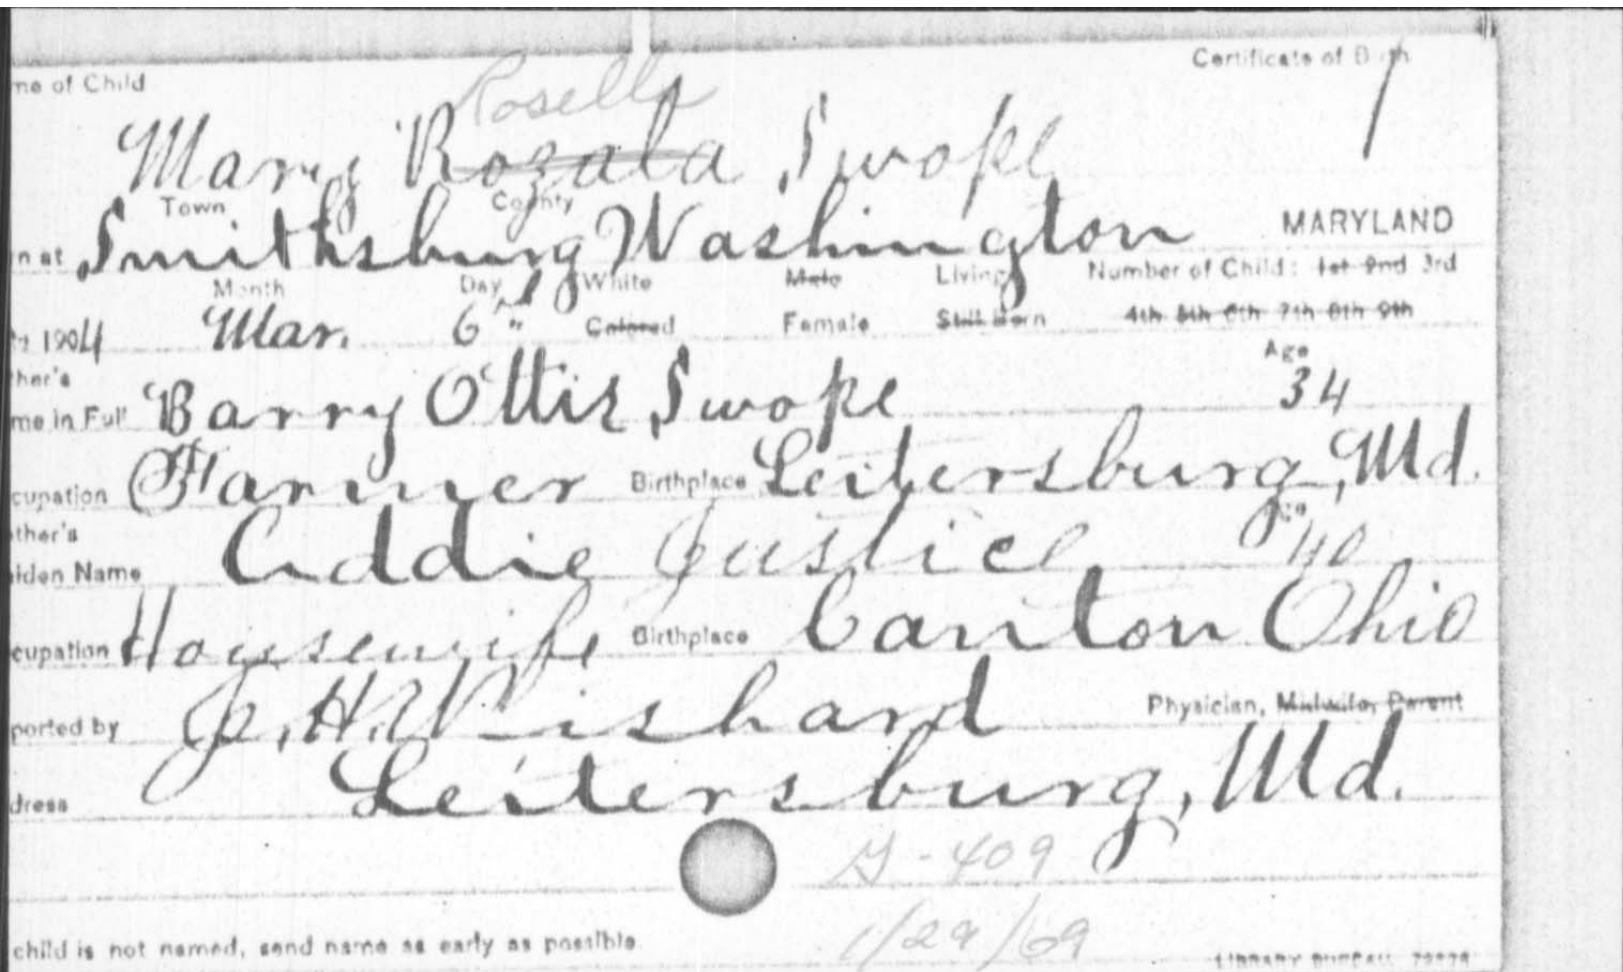 Certificate of Birth
me of Child
Rosella
Mary Rozala Swope
Town County
n at Smithsburg Washington MARYLAND
Month Day White Male Living Number of Child: 1st 2nd 3rd
1904 Mar. 6" Colored Female Still Born 4th 5th 6th 7th 8th 9th
ther's Age
me in Full Barry Ottis Swope 34
cupation Farmer Birthplace Leitersburg, Md.
ther's
iden Name Addie Justice 40
cupation Housewife Birthplace Canton Ohio
ported by J. H. Wishard Physician, Midwife, Parent
dress Leitersburg, Md.
409
1/29/69
child is not named, send name as early as possible.
LIBRARY BUREAU